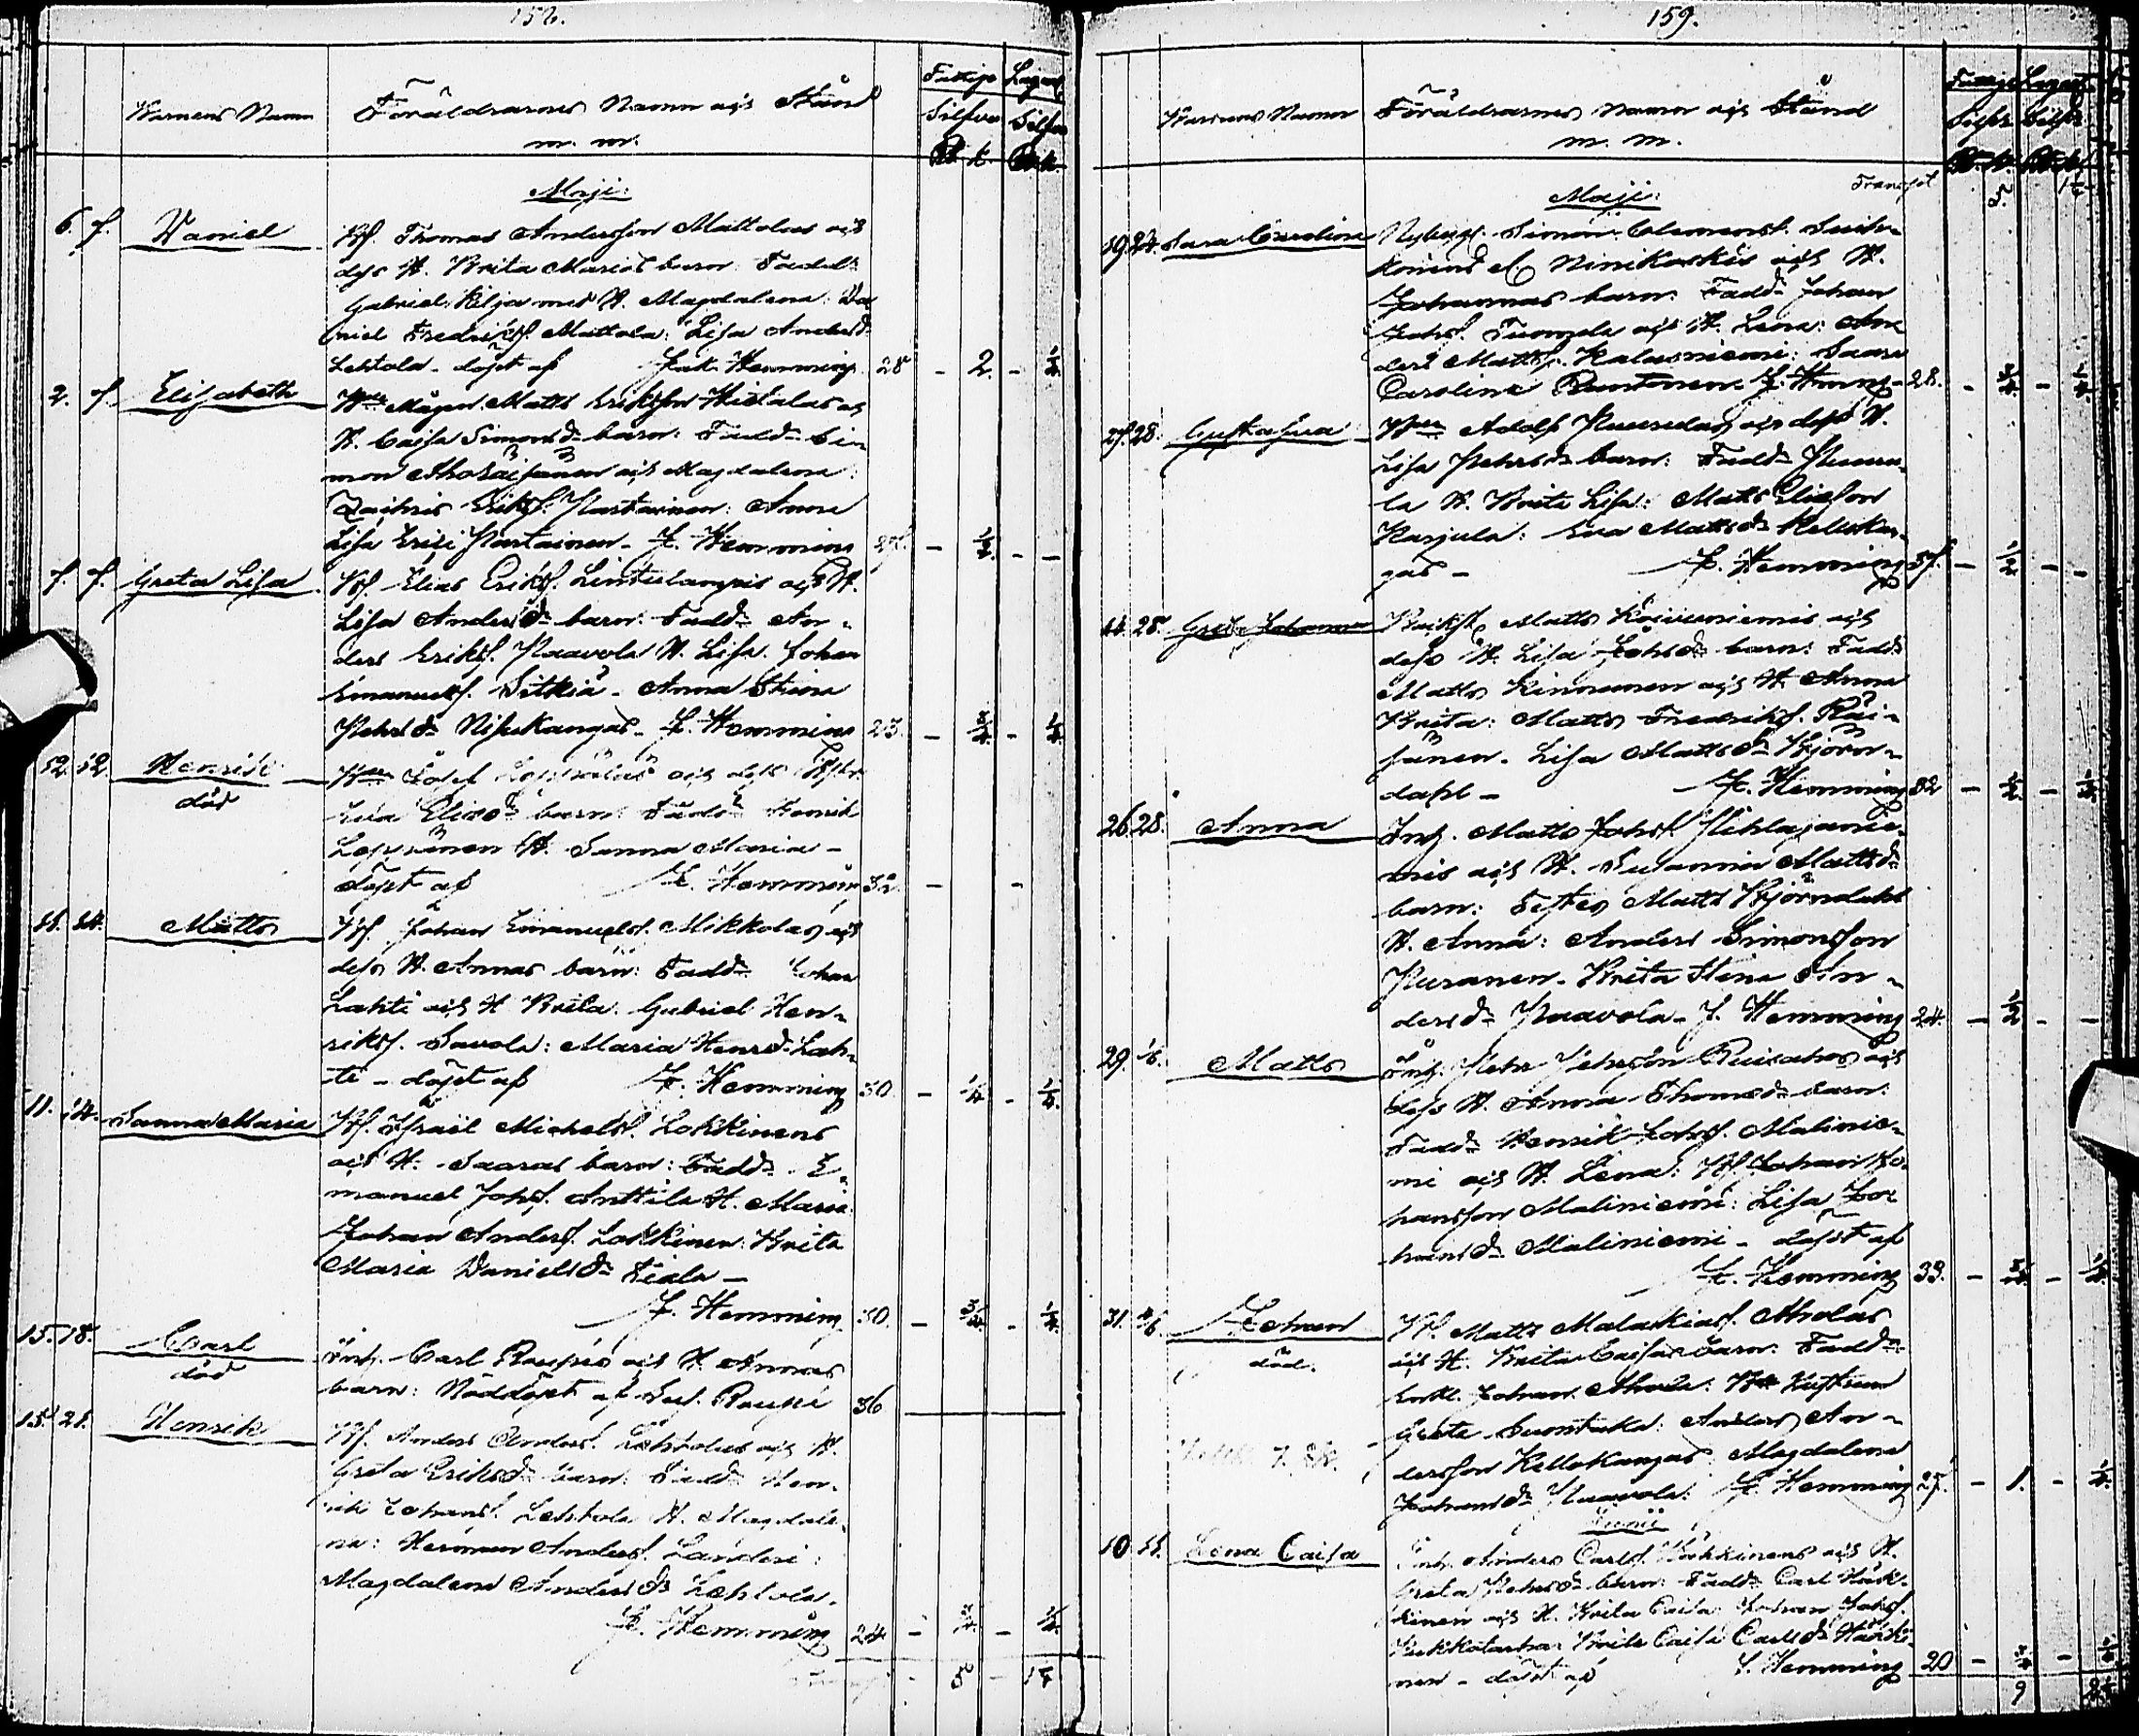 158.
Fattige Lazaret
Barnens Namn Föräldrarnes Namn och Stånd
m. m.
Silfver Silfver
R. k. R. k.
Maji:
6. 7. Daniel Bd. Thomas Andersson Mattolas och
dess H. Brita Marias barn: Fadd:
Gabriel Kilja med H. Magdalena: Da
niel Fredriks. Mattola: Lisa Andersdr
Lehtola - döpt af Joh. Hemming 28 - 2. - 1/4
2. 7. Elisabeth Mågen Matts Eriksson Hietalas och
H. Caisa Simonsdr barn: Faddr Si-
mon Ahosaijanen och Magdalena:
Zachris Eriks. Partainen: Anna
Lisa Erici Partainen - J. Hemming 27. - 1/2 - -
7. 7. Greta Lisa Bd. Elias Eriks. Lintulampis och H.
Lisa Andersdr barn: Faddr An-
ders Eriks. Paavola H. Lisa. Johan
Emanuels. Sitkiä - Anna Stina
Pehrsdr Nisukangas - J. Hemming 23. - 3/4 - 1/4
12. 12. Henrik
död Josef Leppäläs och dess
Eva Eliaedr barn: Faddr Henrik
Leppänen H. Sanna Maria -
döpt af J. Hemming 32. - -
11. 14. Matts Bd. Johan Emanuels. Mikkolas och
dess H. Annas barn: Faddr Johan
Lahti och H. Brita: Gabriel Hen-
riks. Savola: Maria Henrsdr Lah-
ti - döpt af J. Hemming 30. - 1/4 - 1/4
11. 14. Sanna Maria Bd. Israël Michels. Lokkinens
och H. Saaras barn: Faddr E-
manuel Johs. Anttila H. Maria.
Johan Anders. Lokkinen: Brita
Maria Danielsdr Tiala -
J. Hemming 30. - 3/4 - 1/4
15. 18. Carl
död Inh. Carl Raupios och H. Annas
barn: Nöddöpt af Gust. Raupi 36
15. 21. Henrik Bd. Anders Anders. Lehtolas och H.
Greta Eriksdr barn: Faddr Hen-
rik Johans. Lehtola H. Magdale-
na: Herman Anders. Landeri:
Magdalena Andersdr Lehtola.
J. Hemming 24 - 3/4 - 1/4
- 5 - 1 1/4
159.
Fattige Lazaret
Barnens Namn Föräldrarnes Namn och Stånd
m. m.
Silfver Silfver
Maji: Transpt 5. 1 1/4
19. 24. Sara Carolina Nybygg. Simon Clemens.
Niniskoskis och H.
Johannas barn: Faddr Johan
Johs. Tuomela och H. Lena: An
ders Matts. Kalasniemi: Saara
Carolina J. Hemmg - 28. - 3/4 - 1/4
27. 28. Gustafva Adolf Puuralas och dess H.
Lisa Pehrsdr barn: Faddr Puura-
la H. Brita Lisa: Matts Eliasson
Karjula: Eva Mattsdr Kellokan-
gas - J. Hemming 37. - 1/2 - -
14. 28. Greta Johanna Matts Koivuniemis och
dess H. Lisa Johsdr barn: Faddr
Matts Kinnunen och H. Anna
Brita: Matts Fredriks. Räi-
sänen. Lisa Mattsdr Björn-
dahl - J. Hemming 32 - 1/2 - 1/4
26. 28. Anna Inh. Matts Johs. Pihlajanie-
mis och H. Susanna Mattsdr
barn: Testes Matts Björndahl
H. Anna: Anders Simonsson
Puranen - Brita Stina An-
dersdr Paavola - J. Hemming 24. - 1/2 - -
29. Matts Inh. Pehr Pehrsson Ruisahos och
dess H. Anna Thomsdr barn:
Faddr Henrik Johs. Malinie-
mi och H. Lena: Bd. Johan Jo-
hansson Maliniemi: Lisa Jo-
hansdr Maliniemi - döpt af
J. Hemming 33. - 3/4 - 1/4
31. 4/6 Johan
död. Bd. Matts Malakias. Aholas
och H. Brita Caisas barn: Faddr
Enkl. Johan Ahola: Hustrun
Greta Suontaka: Anders An-
dersson Kellokangas: Magdalena
Johansdr Paavola: J. Hemming 27. - 1. - 1/4
Junii
10 11. Lena Caisa Inh. Anders Carls. Häkkinens och H.
Greta Pehrsdr barn: Faddr Carl Häk-
kinen och H. Brita Caisa: Johan Johs.
Brita Caisa Carlsdr Häkki-
nen - döpt af J. Hemming 20 - 3/4 - 1/4
9 2 1/4